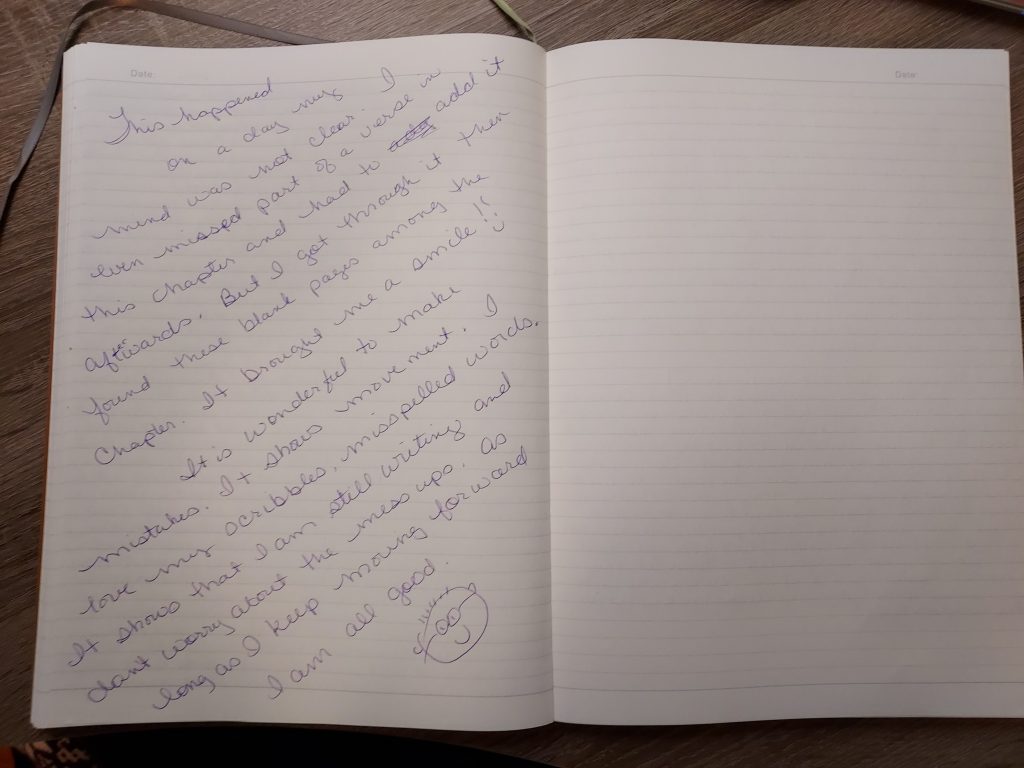 Date:
Date:
This happened
on a day my
mind was not clear. I
even missed part of a verse in
this chapter and had to add it
afterwards. But I got through it then
found these blank pages among the
chapter. It brought me a smile!!
It is wonderful to make
mistakes. It shows movement. I
love my scribbles, misspelled words.
It shows that I am still writing and
don't worry about the mess ups. As
long as I keep moving forward
I am all good.